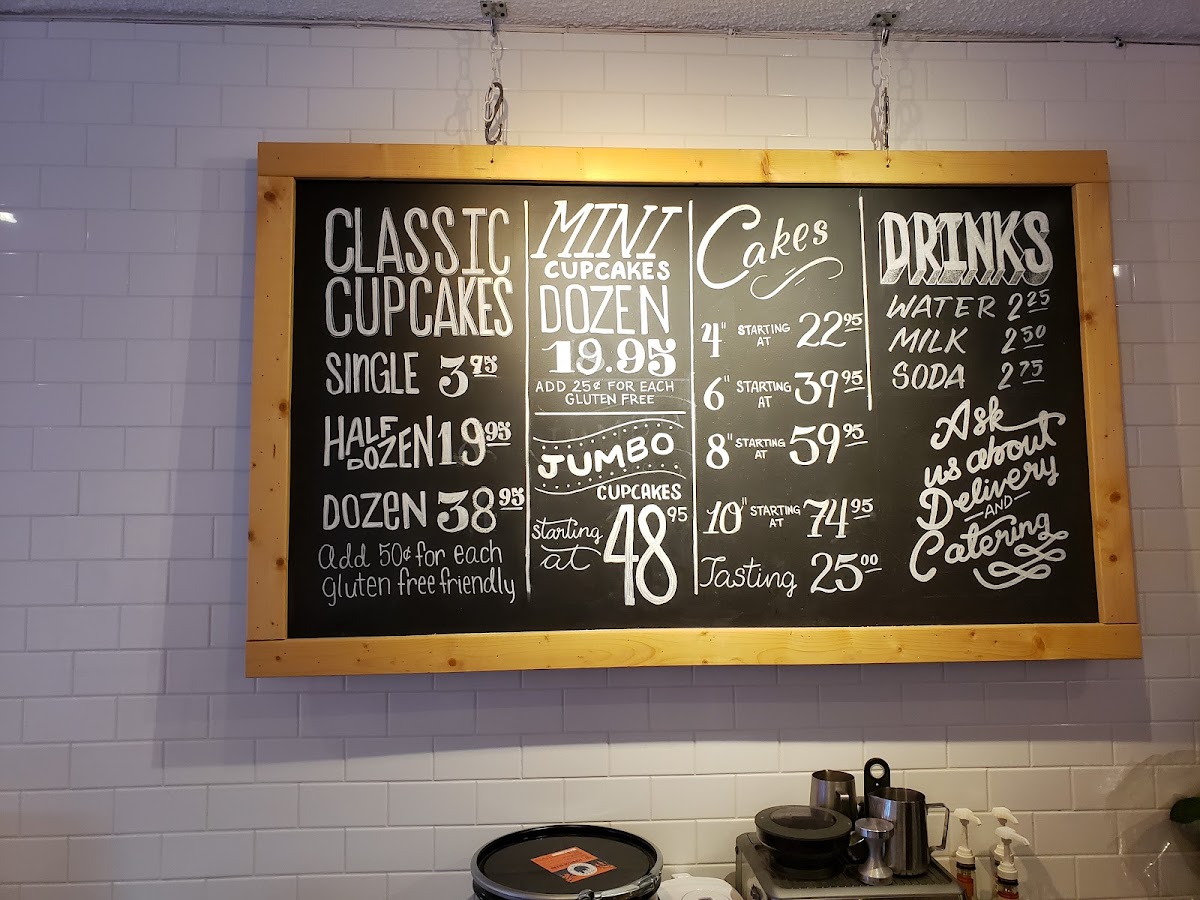 CLASSIC
CUPCAKES
SINGLE 3.75
HALF DOZEN 19.95
DOZEN 38.95
Add 50¢ for each
gluten free friendly
MINI
CUPCAKES
DOZEN
19.95
ADD 25¢ FOR EACH
GLUTEN FREE
JUMBO
CUPCAKES
starting at 48 95
Cakes
4" STARTING AT 22 95
6" STARTING AT 39 95
8" STARTING AT 59 95
10" STARTING AT 74 95
Tasting 25 00
DRINKS
WATER 2 25
MILK 2 50
SODA 2 75
Ask
us about
Delivery
AND
Catering